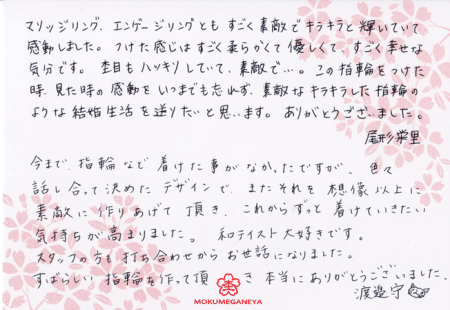 マリッジリング、エンゲージリングとも すごく素敵でキラキラと輝いていて
感動しました。つけた感じはすごく柔らかくて優しくて、すごく幸せな
気分です。杢目もハッキリしていて、素敵で…。この指輪をつけた
時、見た時の感動をいつまでも忘れず、素敵なキラキラした指輪の
ような結婚生活を送りたいと思います。ありがとうございました。
尾形栄里
今まで、指輪など着けた事がなかったですが、色々
話し合って決めたデザインで、またそれを想像以上に
素敵に作りあげて頂き、これからずっと着けていきたい
気持ちが高まりました。和テイスト大好きです。
スタッフの方も打ち合わせからお世話になりました。
すばらしい指輪を作って頂き 本当にありがとうございました。
渡邉守
MOKUMEGANEYA